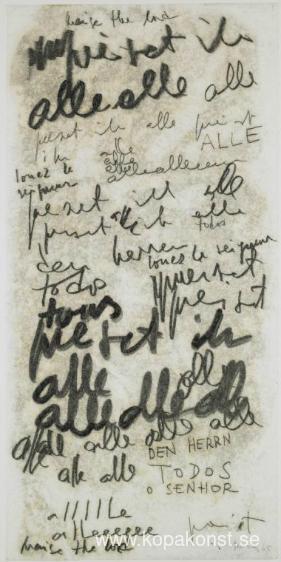 praise the lord
preiset ihn
alle alle alle
preiset ihn alle preiset
ihn alle ALLE
alle
louez le alle alle
seigneur
preiset ihn alle
preiset ihn alle
todos
herren
louez le seigneur
todos preiset
tous preiset
preiset ihn
alle all
alle alle alle
alle alle alle alle
DEN HERRN
alle alle
TODOS
O SENHOR
alllllle
alleeeeee
praise the lord
www.kopakonst.se